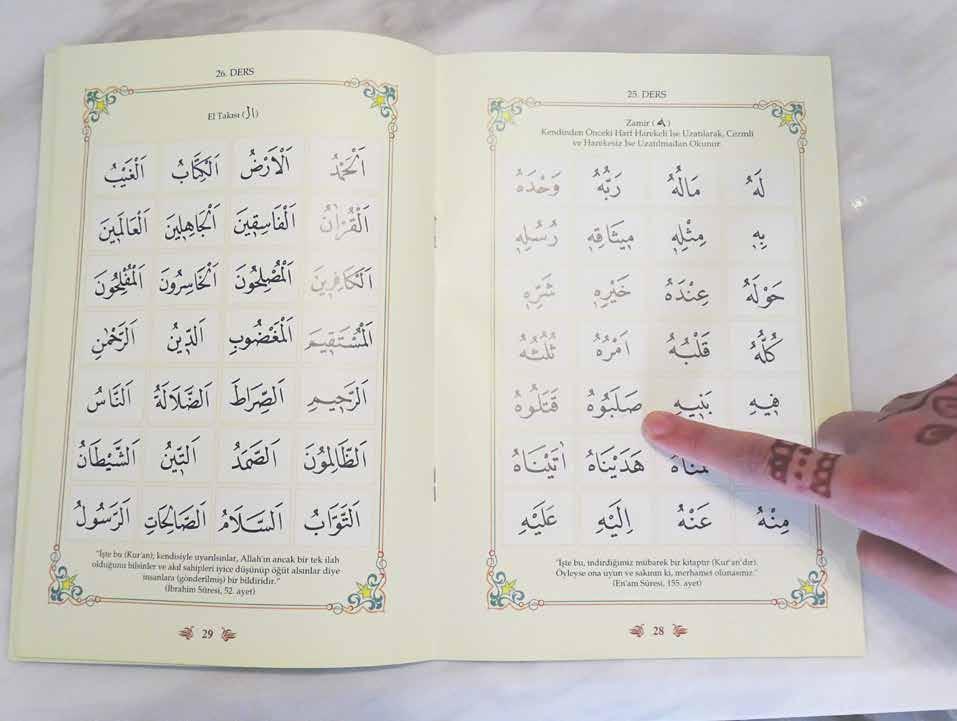 25. DERS
Zamir (ه)
Kendinden Önceki Harf Harekeli İse Uzatılarak, Cezmli
ve Harekesiz İse Uzatılmadan Okunur.
لَهُ مَالُهُ رَبُّهُ وَحْدَهُ
بِهٖ مِثْلِهٖ مِيثَاقِهٖ رُسُلِهٖ
حَوْلَهُ عِنْدَهُ خَيْرِهٖ شَرِّهٖ
كُلُّهُ قَلْبُهُ اَمْرُهُ ثُلُثُهُ
فٖيهِ بَنٖيهِ صَلَبُوهُ قَتَلُوهُ
هَدَيْنَاهُ اٰتَيْنَاهُ
مِنْهُ عَنْهُ اِلَيْهِ عَلَيْهِ
"İşte bu, indirdiğimiz mübarek bir kitaptır (Kur'an'dır).
Öyleyse ona uyun ve sakının ki, merhamet olunasınız."
(En'am Sûresi, 155. ayet)
28
26. DERS
El Takısı (اَلْ)
اَلْحَمْدُ اَلْاَرْضُ اَلْكِتَابُ اَلْغَيْبُ
اَلْقُرْاٰنُ اَلْفَاسِقٖينَ اَلْجَاهِلٖينَ اَلْعَالَمٖينَ
اَلْكَافِرٖينَ اَلْمُصْلِحُونَ اَلْخَاسِرُونَ اَلْمُفْلِحُونَ
اَلْمُسْتَقٖيمَ اَلْمَغْضُوبِ اَلدّٖينُ اَلرَّحْمٰنِ
اَلرَّحٖيمِ اَلصِّرَاطَ اَلضَّلَالَةُ اَلنَّاسُ
اَلظَّالِمُونَ اَلصَّمَدُ اَلتّٖينُ اَلشَّيْطَانُ
اَلتَّوَّابُ اَلسَّلَامُ اَلصَّالِحَاتِ اَلرَّسُولُ
"İşte bu (Kur'an); kendisiyle uyarılsınlar, Allah'ın ancak bir tek ilah
olduğunu bilsinler ve akıl sahipleri iyice düşünüp öğüt alsınlar diye
insanlara (gönderilmiş) bir bildiridir."
(İbrahim Sûresi, 52. ayet)
29